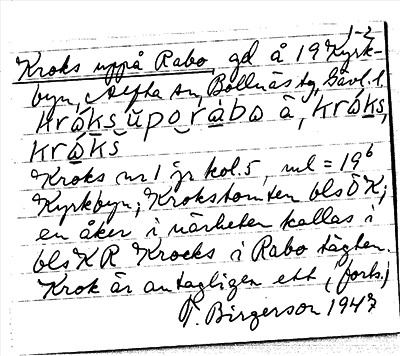 1-2
Kroks uppå Rabo, gd å 19 Kyrk-
byn, Alfta sn, Bollnäs tg, Gävl. l.
kråks upo rabo å, kråks,
kråks
Kroks nr 1 jr kol. 5, ml = 19⁶
Kyrkbyn; Krokstomten bls ÖK;
en åker i närheten kallas i
bls KR Krocks i Rabo tägten.
Krok är antagligen ett (forts.)
T. Birgerson 1947